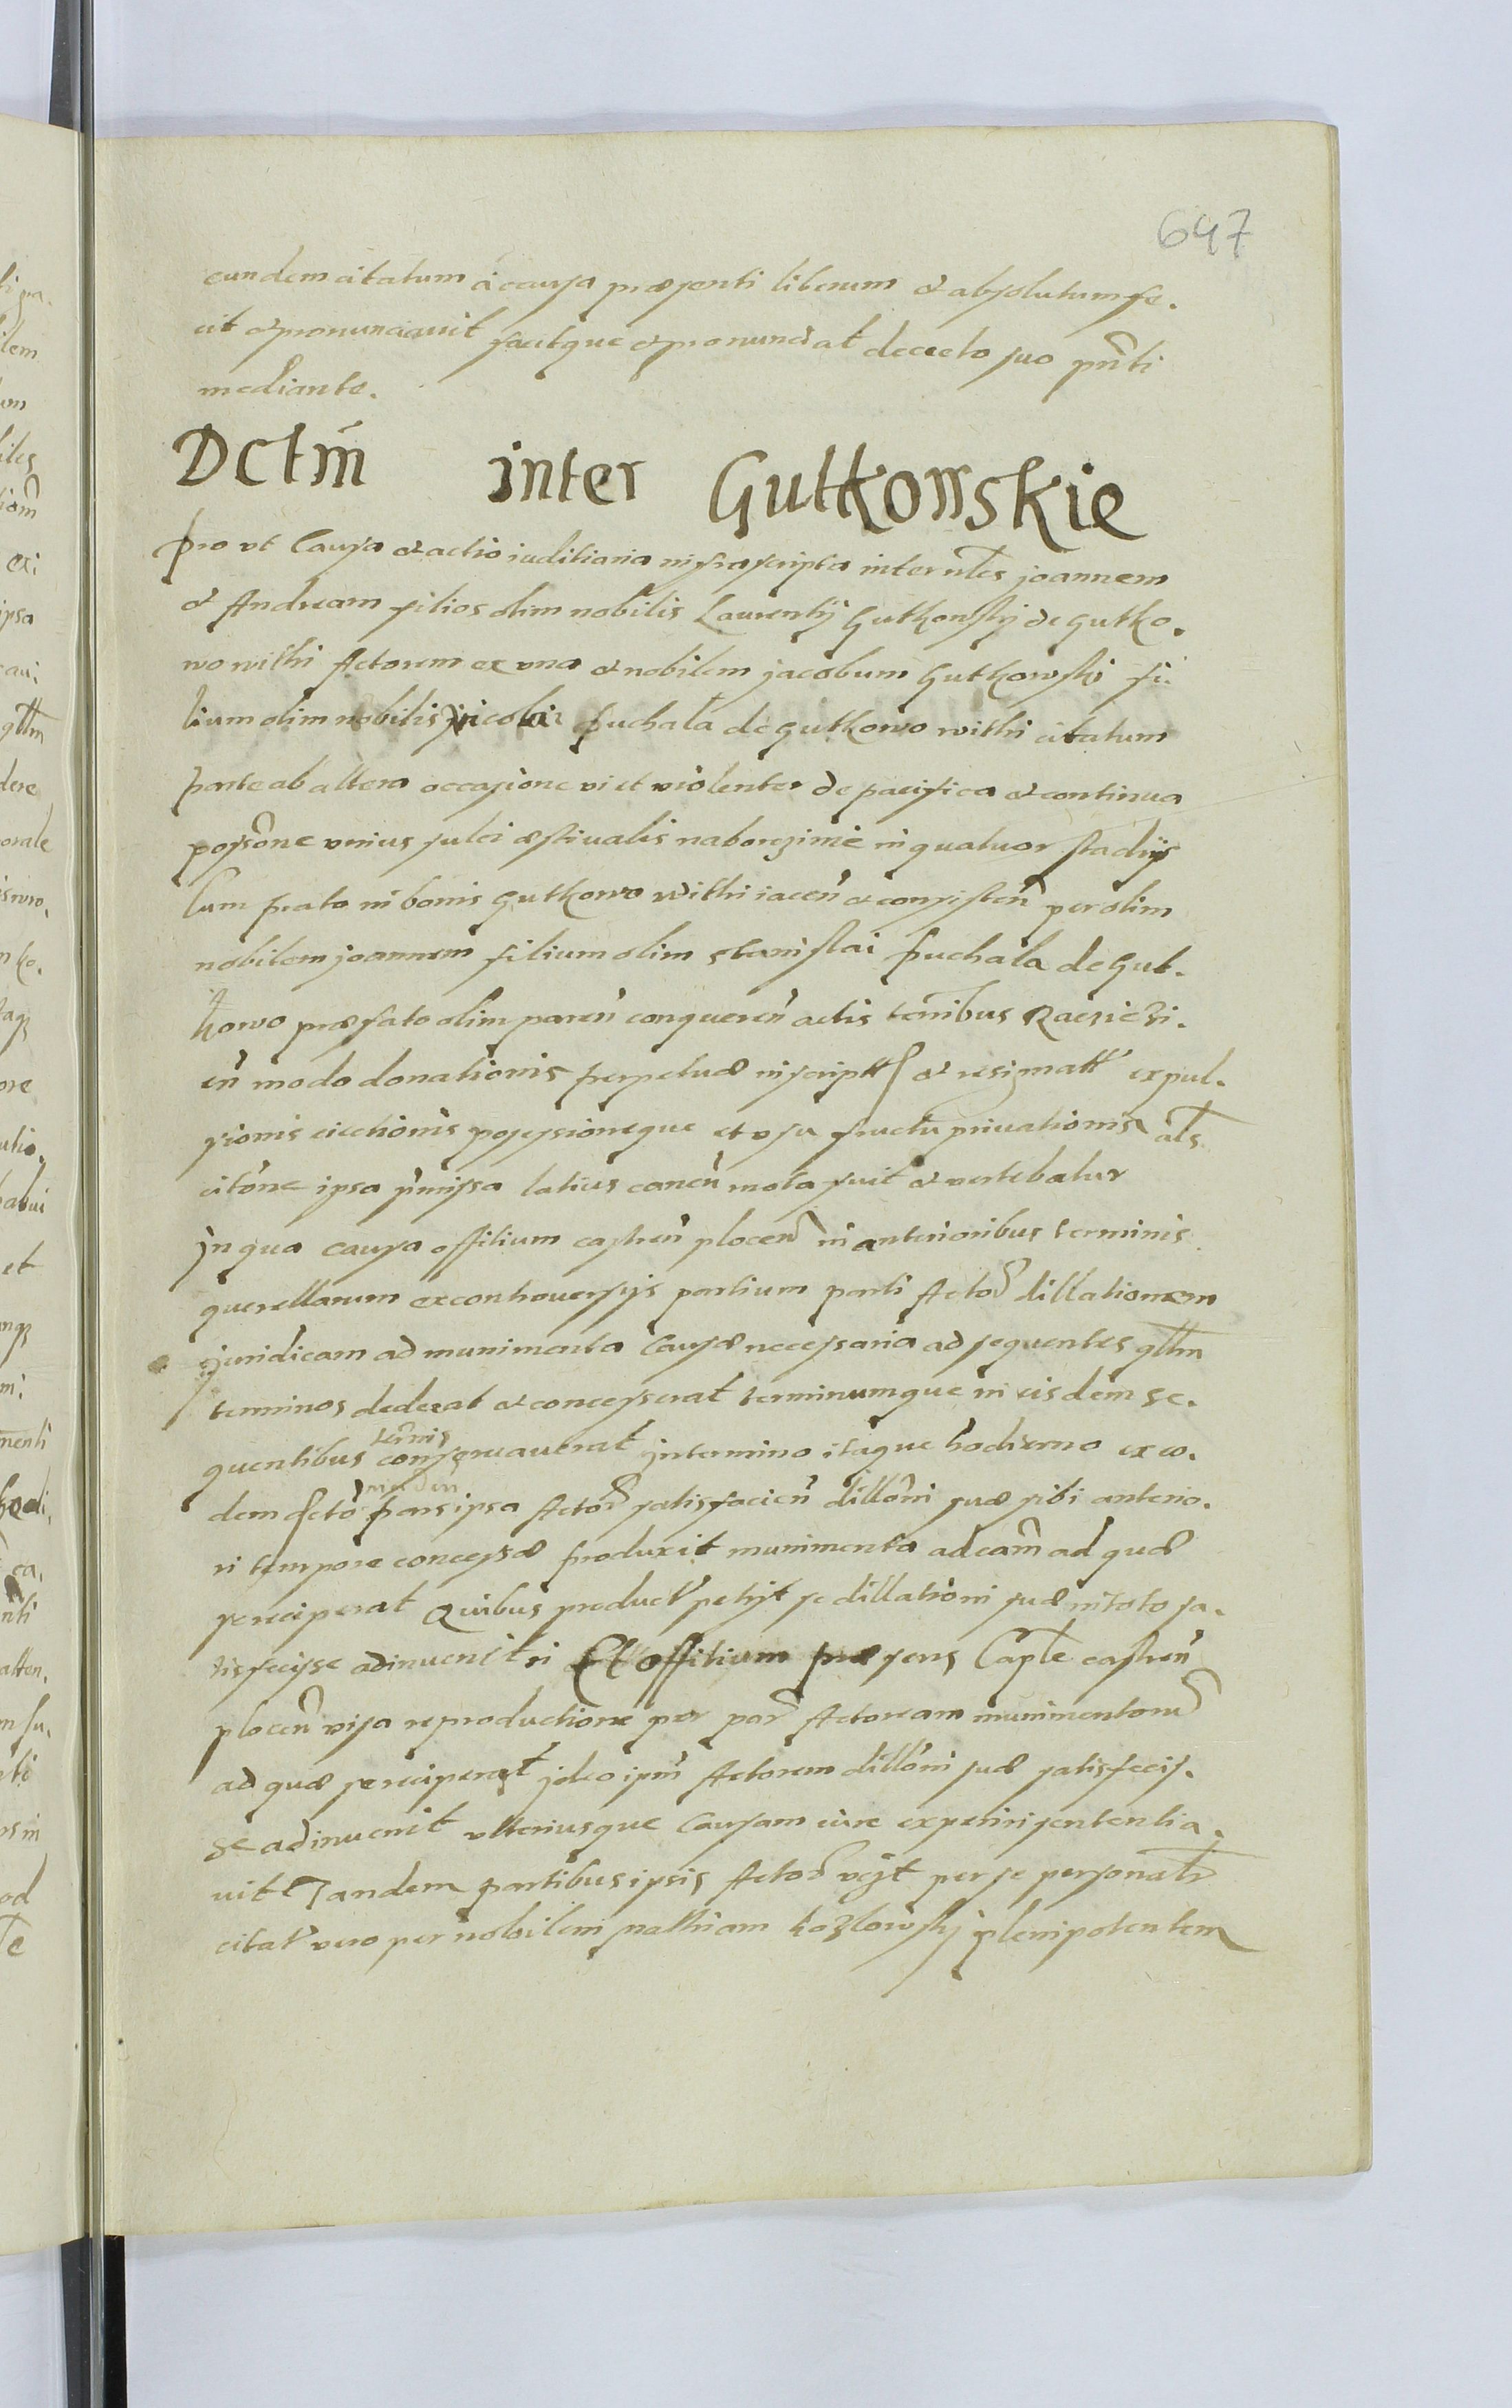 647
eundem citatum à causa præsenti liberum & absolutum fe.
cit & pronunciavit facitque & pronunciat decreto suo pn̄ti
mediante.
Dctm̄ inter Gutkowskie
Pro ut Causa & actio iuditiaria infrascripta inter nles Joannem
& Andream filios olim nobilis Laurentij Gutkowskij de Gutko.
wo withi Actorem ex una & nobilem Jacobum Gutkowski fi
lium olim nobilis Nicolai Puchała de Gutkowo withi citatum
parte ab altera occasione vi et violenter de pacifica & continua
possōne unius sulci æstivalis na borezinie in quatuor stadijs
Cum prato in bonis Gutkowo withi iaceñ & consisteñ per olim
nobilem Joannem filium olim Stanislai Puchała de Gut.
kowo præfato olim pareñ conquereñ actis terribus Racziezi.
eñ modo donationis perpetuæ inscript & resignatt expul.
sionis eiectionis possessioneque et usu fructu privationis als
citōne ipsa p̄missa latius caneñ mota fuit & vertebatur
In qua causa offitium castreñ ploceñ in anterioribus terminis
querellarum ex controversijs partium parti Actor dillationem
juridicam ad munimenta Causæ necessaria ad sequentes qllm
terminos dederat & concesserat terminumque in eisdem se.
quentibus ter̄nis conservaverat In termino itaque hodierno ex eo.
dem fcto pars ipsa Actor satisfacieñ dillōni suæ sibi anterio.
ri tempore concessæ produxit munimenta ad eam̄ ad quæ
se receperat Quibus product petijt se dillationi suæ in toto sa.
tisfecisse adinveniri Et offitium præsens Caple castreñ
ploceñ visa reproductione per par Actoream munimentorum
ad quæ se receperat ideo ipm̄ Actorem dillōni suæ satisfecis.
se adinvenit ulteriusque Causam iure experiri sententia.
vit Tandem partibus ipsis Actor per se personalr
citat vero per nobilem Mathiam Kozłowskj plenipotentem